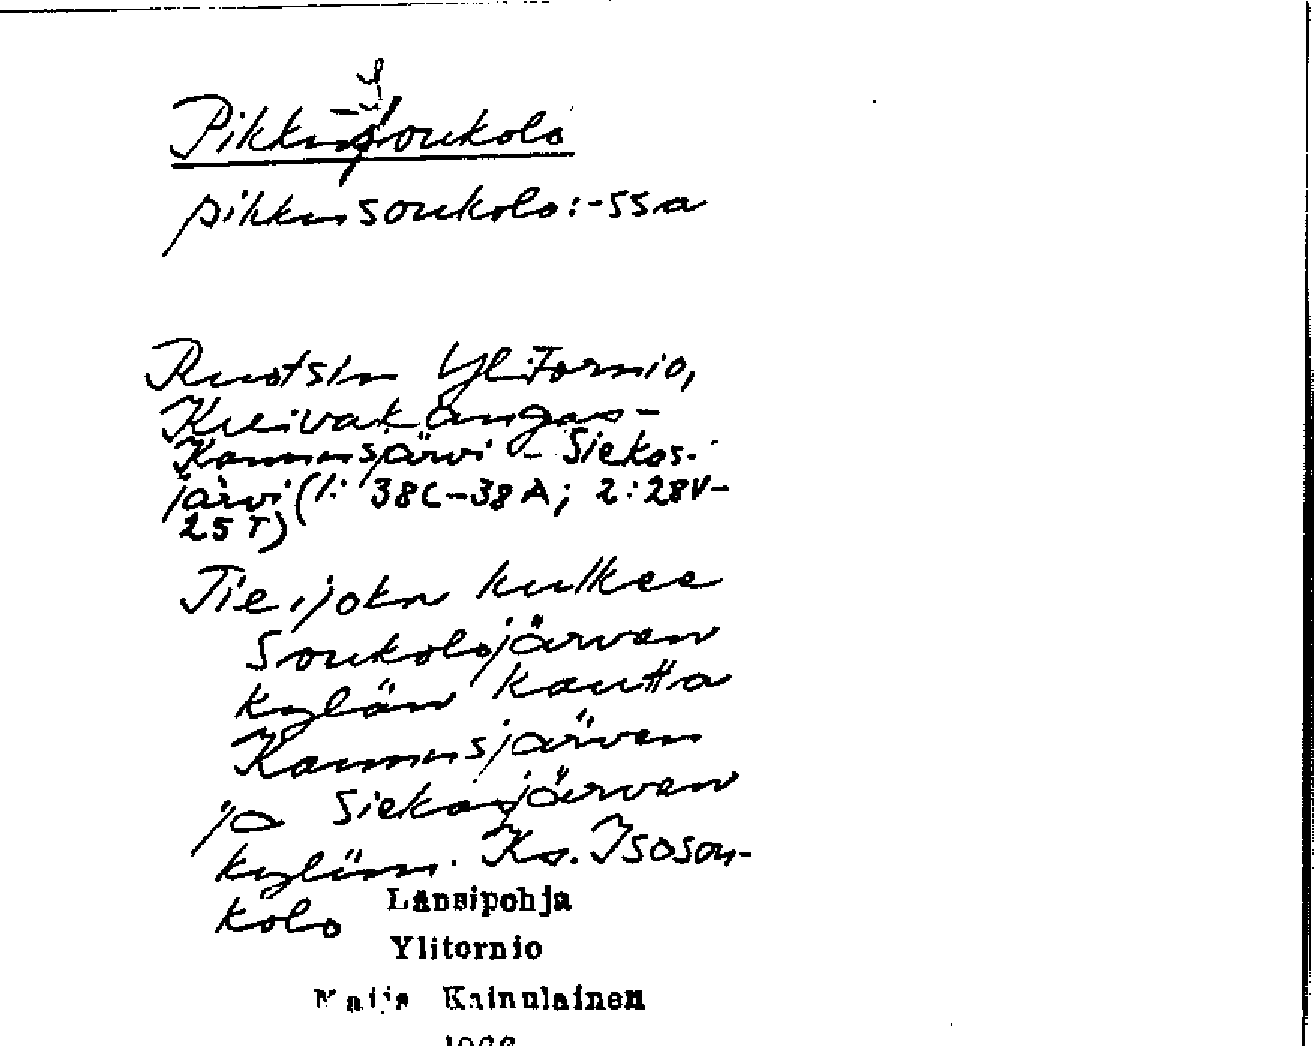 Pikkusoukolo
pikkusoukolo:-ssa
Ruotsin Ylitornio,
Kuivakangas-
Kaunusjärvi - Siekas-
järvi (1: 38C-38A; 2:28V-
25T)
Tie, joka kulkee
Soukolojärven
kylän kautta
Kaunusjärven
ja Siekasjärven
kyliin. Ks. Isosou-
kolo
Länsipohja
Ylitornio
Maija Kainulainen